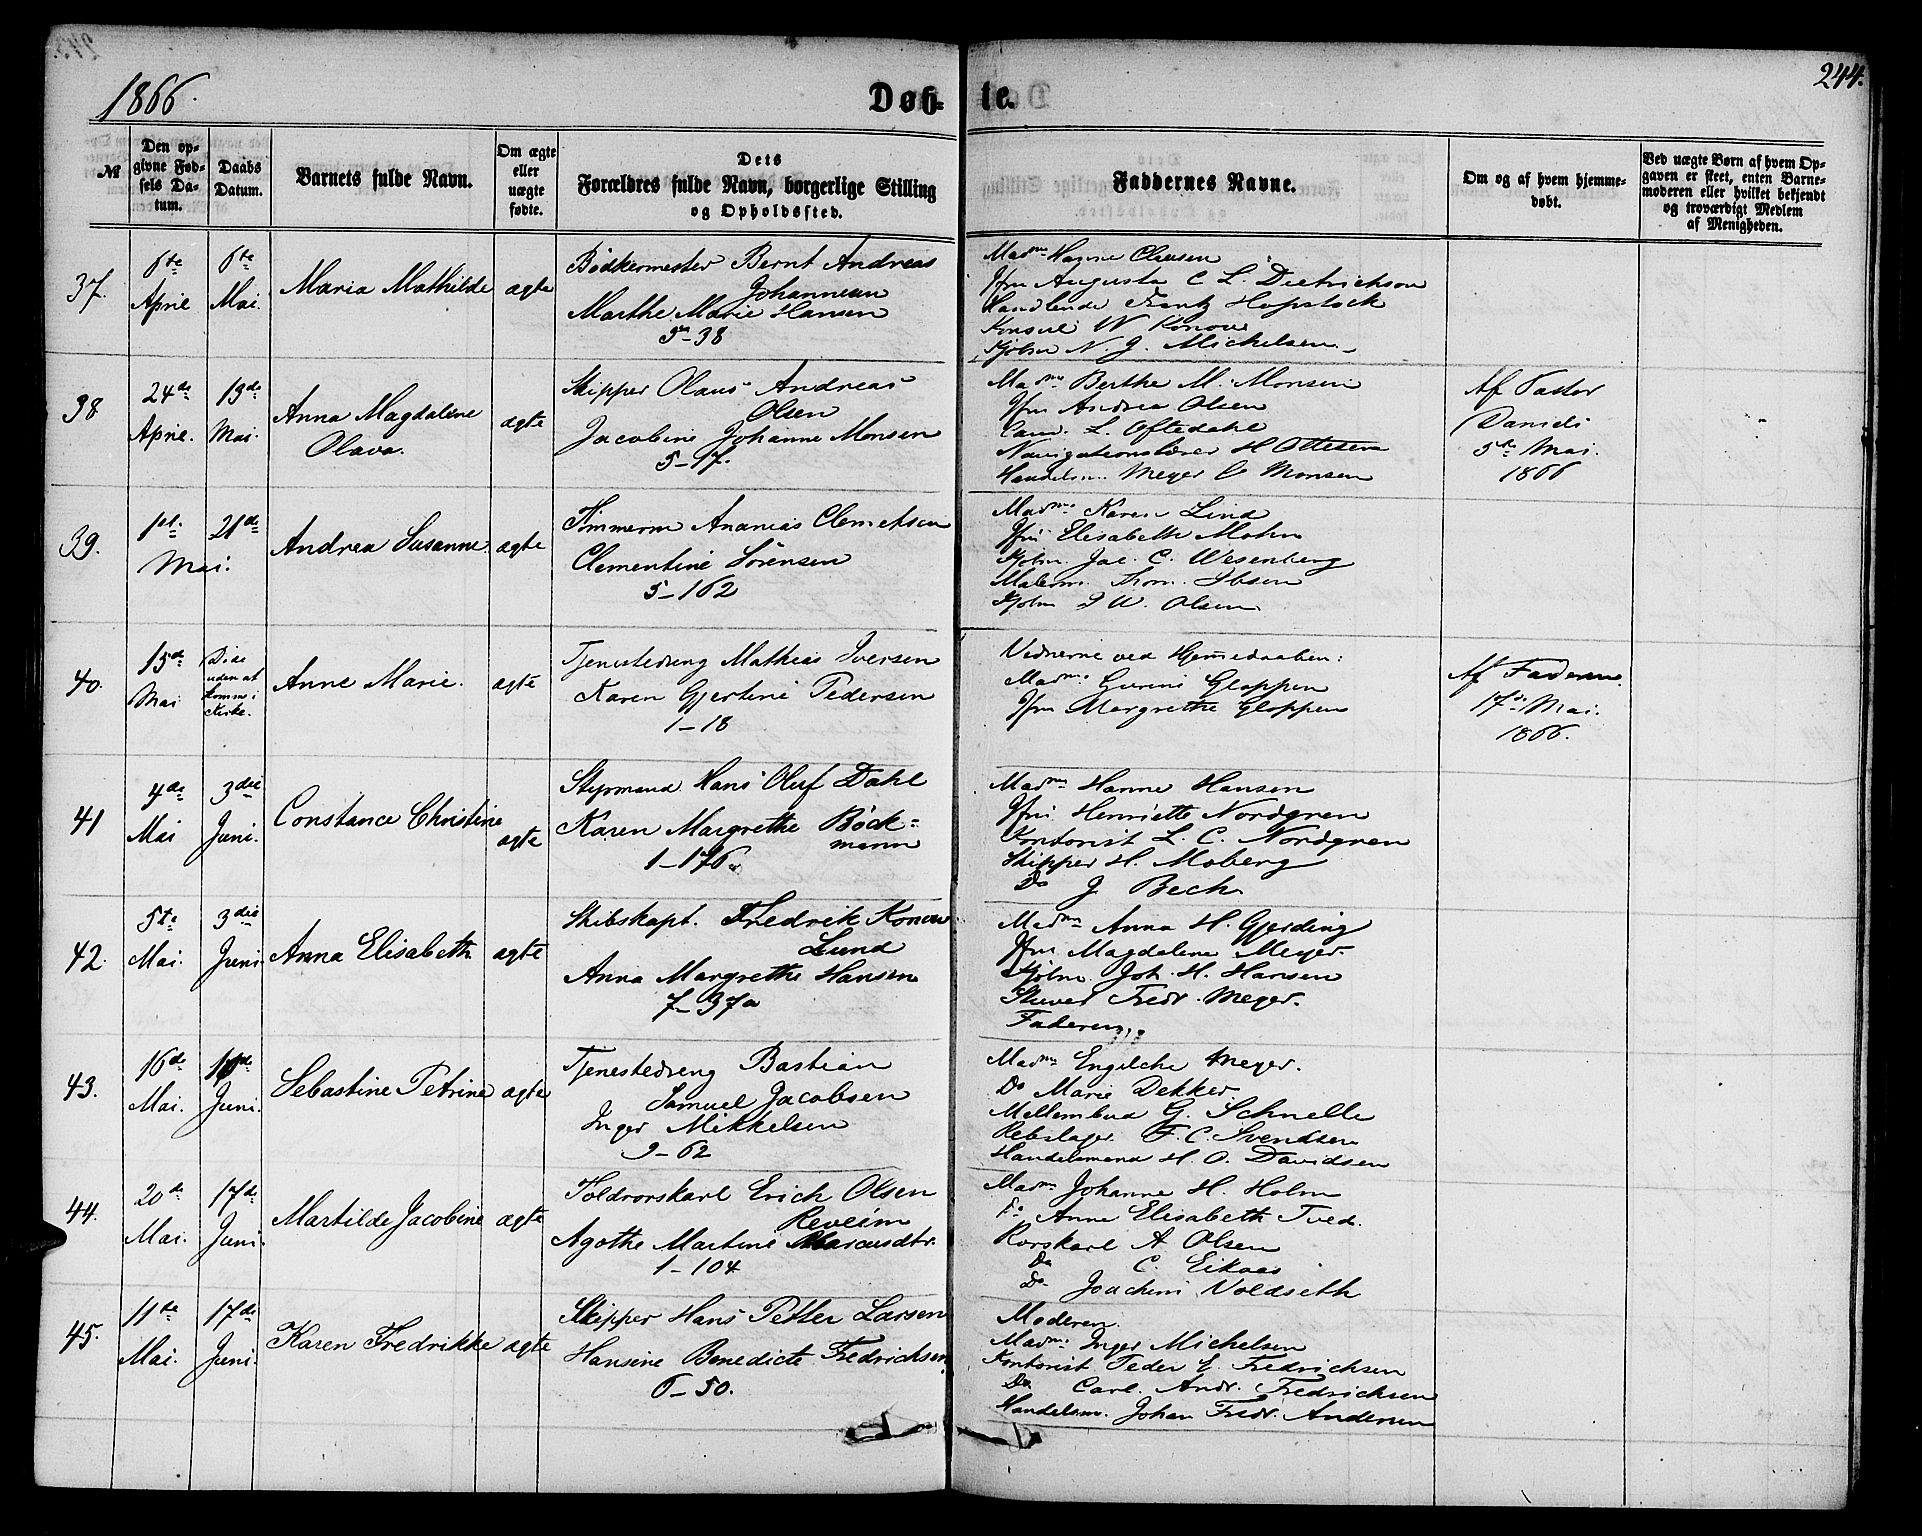 1866.
Døb-
te.
244.
№
Den op-
givne Fød-
sels Da-
tum.
Daabs
Datum.
Barnets fulde Navn.
Om ægte
eller
uægte
fødte.
Dets
Forældres fulde Navn, borgerlige Stilling
og Opholdssted.
Faddernes Navne.
Om og af hvem hjemme-
døbt.
Ved uægte Børn af hvem Op-
gaven er skeet, enten Barne-
moderen eller hvilket bekjendt
og troværdigt Medlem
af Menigheden.
37.
6te
April
6te
Mai.
Maria Mathilde
ægte
Bødkermester Bernt Andreas
Johannesen
Marthe Marie Hansen
5-38
Madme Hagine Clausen
Jfru Augusta C L. Dietrichson
Handlende Frantz Hopstock
Konsul W Konow
Kjøbm N. J. Michelsen.
38
24de
April.
13de
Mai.
Anna Magdalene
Olava.
ægte
Skipper Olaus Andreas
Olsen
Jacobine Johanne Monsen
5-17.
Madme Berthe M. Monsen
Jfru Andrea Olsen
Cand. L. Oftedahl
Navigationslærer H Ottesen
Handelsm. Meyer C Monsen
Af Pastor
Daniels
5te Mai.
1866
39.
1st.
21de
Mai.
Andrea Susanne
ægte
Tømmerm Ananias Clemetsen
Clementine Sørensen
5-162
Madme Karen Lind
Jfru Elisabeth Mohn
Kjøbm Jac. C. Wesenberg
Malerm. Thom. Ibsen
Kjøbm P W. Olsen
40.
15de
Mai
Død
uden at
komme i
Kirke.
Anne Marie.
ægte
Tjenestedreng Mathias Iversen
Karen Gjertine Pedersen
1-18
Vidnerne ved Hjemmedaaben:
Madme Gurine Gloppen
Jfru Margrethe Gloppen
Af Faderen.
17de Mai.
1866.
41
4de
Mai
3die
Juni.
Constance Christine
ægte
Styrmand Hans Oluf Dahl
Karen Margrethe Böck=
mann
1-176.
Madme Hanne Hansen
Jfru Henriette Nordgren
Kontorist L. C. Nordgren
Skipper H. Moberg
Do J Bech
42.
5te
Mai.
3die
Juni.
Anna Elisabeth
ægte
Skibskapt. Fredrik Konow
Lund
Anna Margrethe Hansen
7-37a
Madme Anna H. Gjerding
Jfru Magdalene Meyer.
Kjøbm. Joh. H. Hansen
Stuver Fredr. Meyer.
Faderen
43.
16de
Mai.
Juni.
Sebastine Petrine
ægte
Tjenestedreng Bastian
Samuel Jacobsen
Inger Mikkelsen
9-62
Madme Engelche Meyer.
Do Marie Dekker.
Mellembud G. Schnelle
Rebslager F. C. Svendsen
Handelsmand H. O. Davidsen
44.
20de
Mai.
17de
Juni.
Martilde Jacobine
ægte
Toldrorskarl Erich Olsen
Reveim
Agothe Martine Marcusdtr.
1-104
Madme Johanne H. Holm
Do Anne Elisabeth Tved.
Rorskarl A Olsen
Do C. Eikaas
Do Joachim Voldseth
45.
11te
Mai.
17de
Juni.
Karen Fredrikke
ægte
Skipper Hans Petter Larsen
Hansine Benedicte Fredrichsen
6-50.
Moderen.
Madme Inger Michelsen
Kontorist Peder E. Fredrichsen
Do Carl. Andr. Fredrichsen
Handelsm. Johan Fredr. Andersen